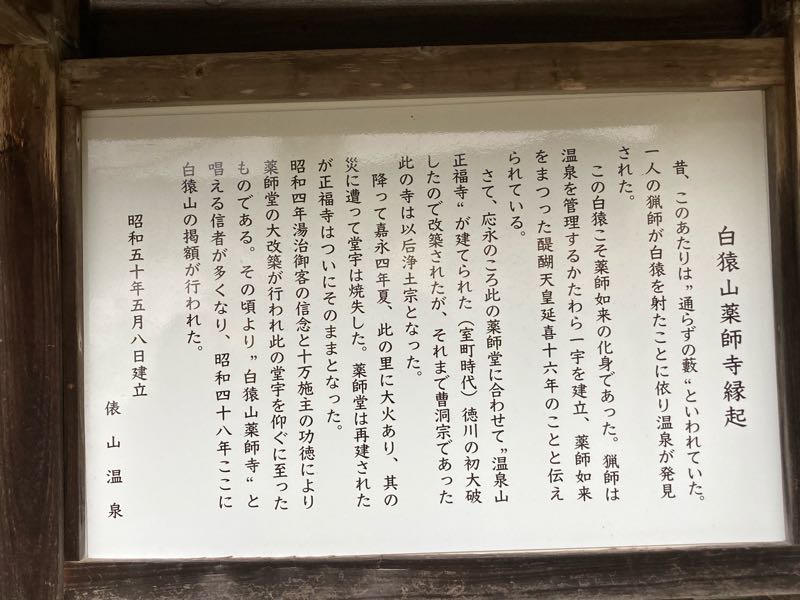 白猿山薬師寺縁起
昔、このあたりは”通らずの藪“といわれていた。
一人の猟師が白猿を射たことに依り温泉が発見
された。
この白猿こそ薬師如来の化身であった。猟師は
温泉を管理するかたわら一宇を建立、薬師如来
をまつった醍醐天皇延喜十六年のことと伝え
られている。
さて、応永のころ此の薬師堂に合わせて”温泉山
正福寺“が建てられた（室町時代）徳川の初大破
したので改築されたが、それまで曹洞宗であった
此の寺は以后浄土宗となった。
降って嘉永四年夏、此の里に大火あり、其の
災に遭って堂宇は焼失した。薬師堂は再建された
が正福寺はついにそのままとなった。
昭和四年湯治御客の信念と十万施主の功徳により
薬師堂の大改築が行われ此の堂宇を仰ぐに至った
ものである。その頃より”白猿山薬師寺“と
唱える信者が多くなり、昭和四十八年ここに
白猿山の掲額が行われた。
昭和五十年五月八日建立
俵山温泉